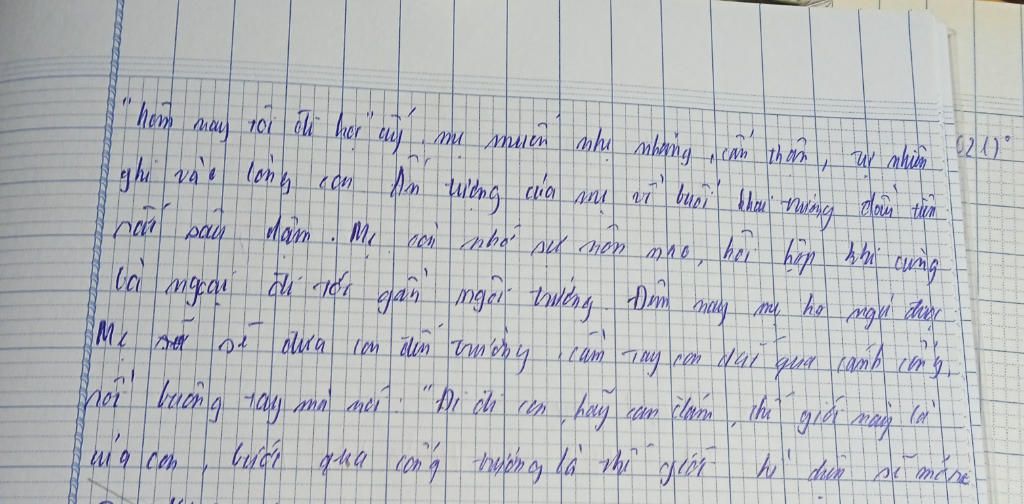 "hôm nay tôi đi học" ấy, mẹ muốn nhẹ nhàng, cẩn thận, tự nhiên
ghi vào lòng con. Ấn tượng của mẹ về buổi khai trường đầu tiên
rất sâu đậm. Mẹ còn nhớ sự nôn nao, hồi hộp khi cùng
bà ngoại đi tới gần ngôi trường. Đêm nay mẹ ko ngủ được.
Mẹ sẽ đưa con đến trường, cầm tay con dắt qua cánh cổng,
rồi buông tay mà nói: "Đi đi con, hãy can đảm, thế giới này là
của con, bước qua cổng trường là thế giới kì diệu sẽ mở ra